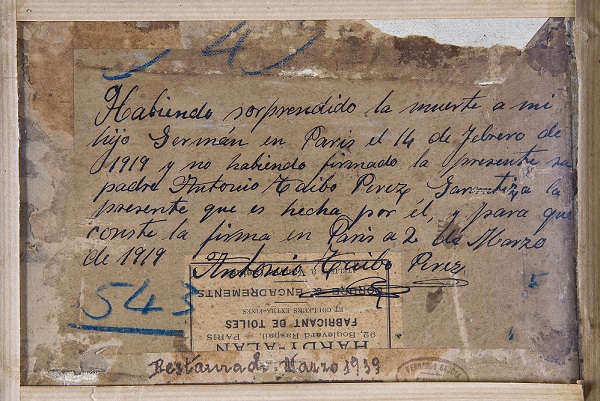 4
Habiendo sorprendido la muerte a mi
hijo Germán en Paris el 14 de Febrero de
1919 y no habiendo firmado la presente su
padre Antonio Taibo Perez Garantiza la
presente que es hecha por él, y para que
conste la firma en Paris a 2 de Marzo
de 1919 Antonio Taibo Perez
5
543
& ENCADREMENTS
ET COULEURS EXTRA-FINES
FABRICANT DE TOILES
92, Boulevard Raspail. - PARIS
HARDY-ALAN
Restaurado Marzo 1939